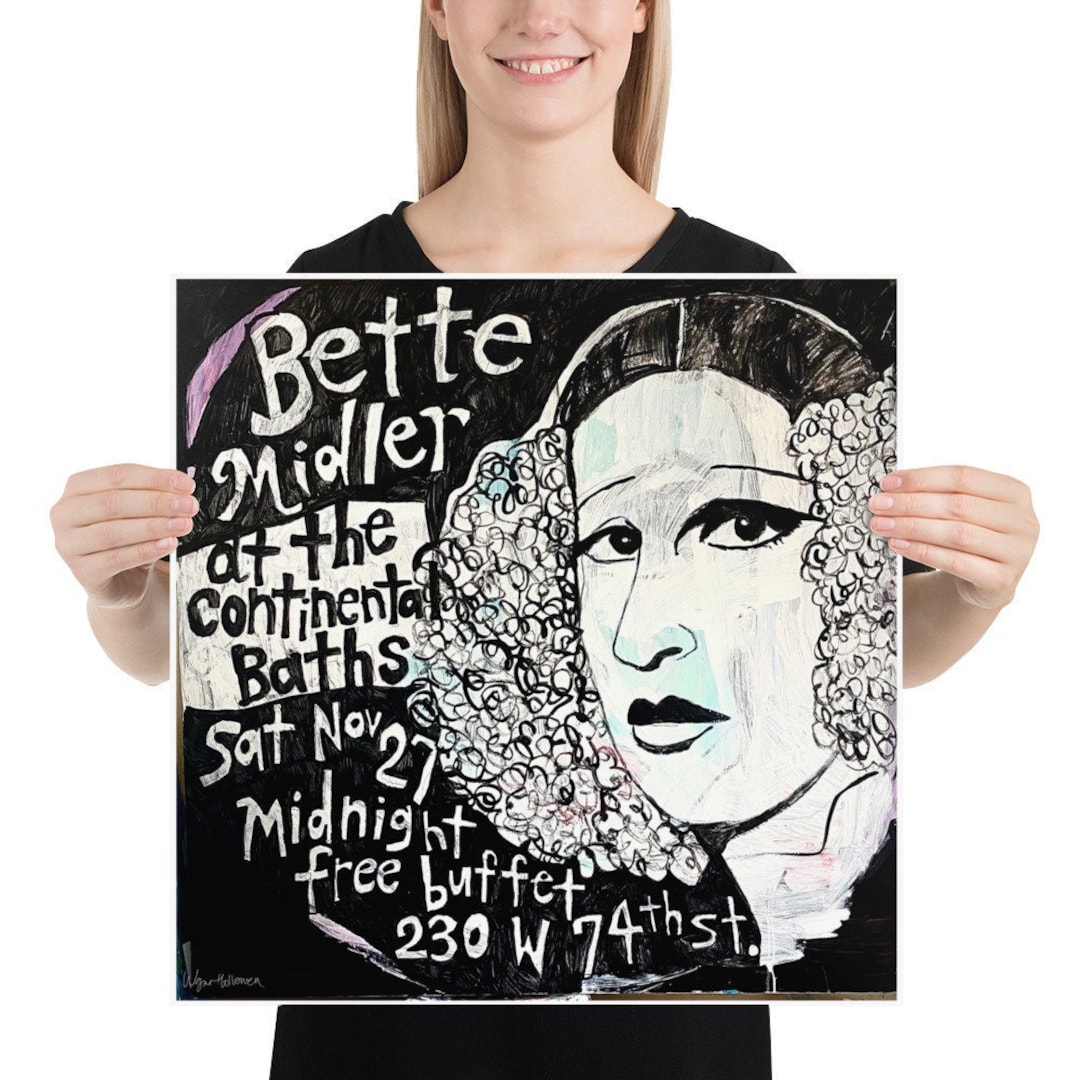 Bette
Midler
at the
continental
Baths
Sat Nov 27
Midnight
free buffet
230 W 74th st.